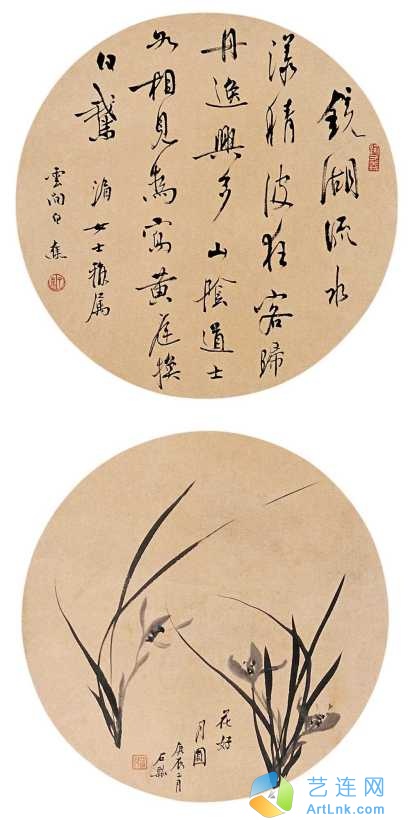 鏡湖流水
漾清波狂客歸
舟逸興多山陰道士
如相見為寫黃庭換
白鵝
女士雅屬
雲間白蕉
花好
月圓
庚辰二月
若瓢
艺连网
ArtLnk.com